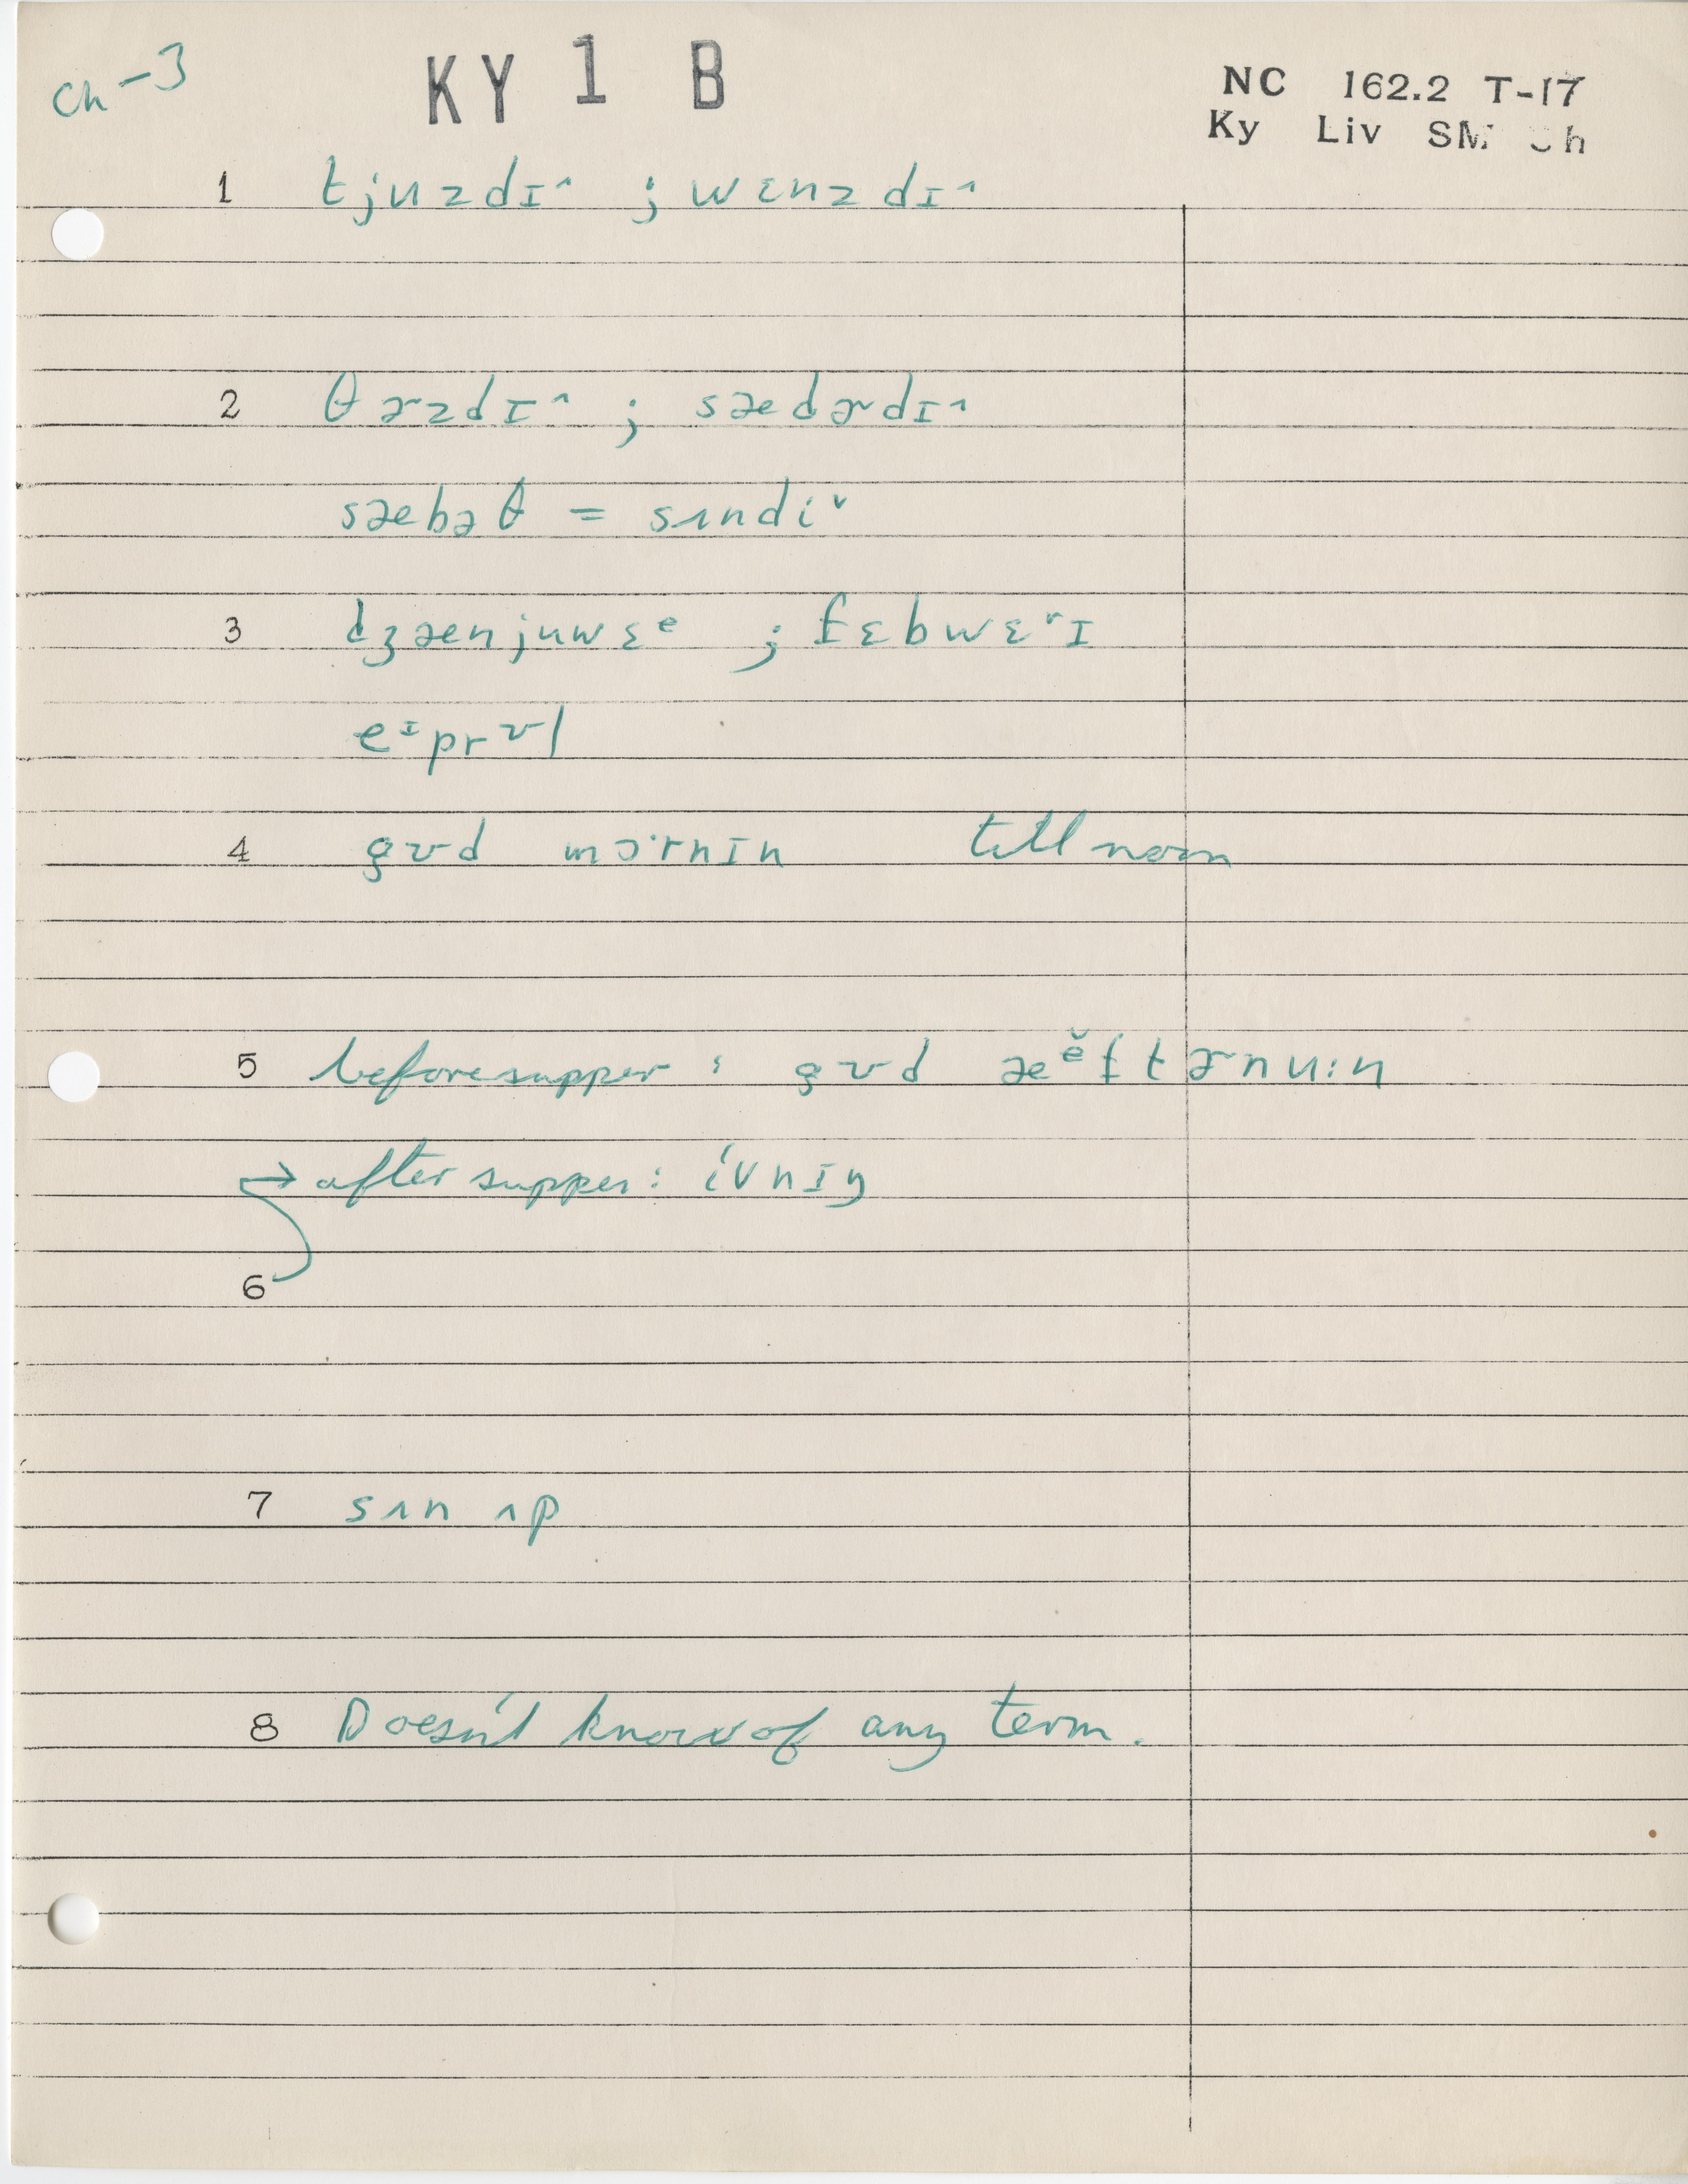 Ch-3
KY 1 B
NC 162.2 T-17
Ky Liv SM Ch
1 tjuzdɪ^ ; wɛnzdɪ^
2 θɚzdɪ^ ; sædɚdɪ^
sæbəθ = sʌndiˇ
3 dʒænjuwɛᵉ ; fɛbwɛʳɪ
eᶦprʊl
4 gʊd mɔ·rnɪn till noon
5 before supper : gʊd æᵉ̆ftɚnu:n
→ after supper : ivnɪŋ
6
7 sʌn ʌp
8 Doesn't know of any term.